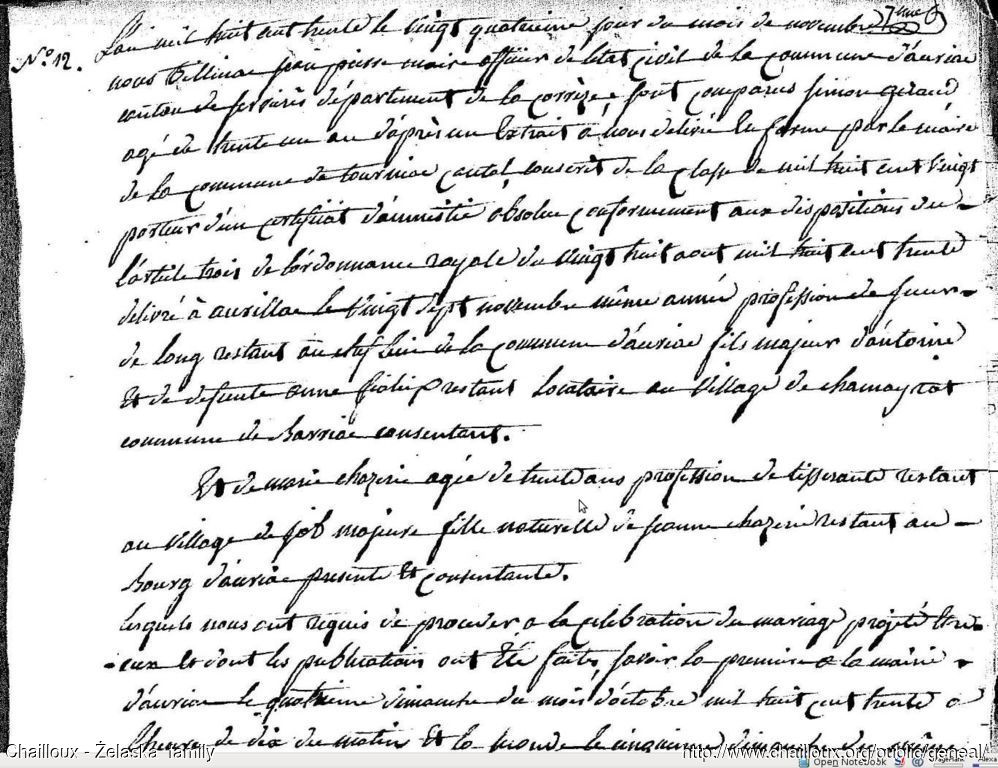 7me
N.o 12.
L'an mil huit cent trente le vingt quatrieme jour du mois de novembre
nous jean pierre maire officier de l'etat civil de la commune d'auriac
canton de servieres département de la correze, sont comparus simon geraud
agé de trente un an d'après un Extrait à nous delivré En forme par le maire
de la commune de tourniac cantal, conscrit de la classe de mil huit cent vingt
porteur d'un certificat d'amnistie absolue conformement aux dispositions de
l'article trois de l'ordonnance royale du vingt huit aout mil huit cent trente
delivré à aurillac le vingt sept novembre même année profession de scieur
de long restant au chef lieu de la commune d'auriac fils majeur d'antoine
Et de defunte anne restant locataire au village de
commune de Barriac consentant.
Et de marie chazeirie agée de trente ans profession de tisserante restant
au village de job majeure fille naturelle de jeanne chazeirie restant au
Bourg d'auriac presente Et consentante.
lesquels nous ont requis de proceder a la celebration du mariage projeté Entre
eux Et dont les publications ont Eté faites, savoir la premiere a la mairie
d'auriac le quatrieme dimanche du mois d'octobre mil huit cent trente a
l'heure de dix du matin Et la seconde le cinquieme dimanche du même
Chailloux - Želaska family
http://www.chailloux.org/public/geneal/
Open Notebook
PageRank
Alexa